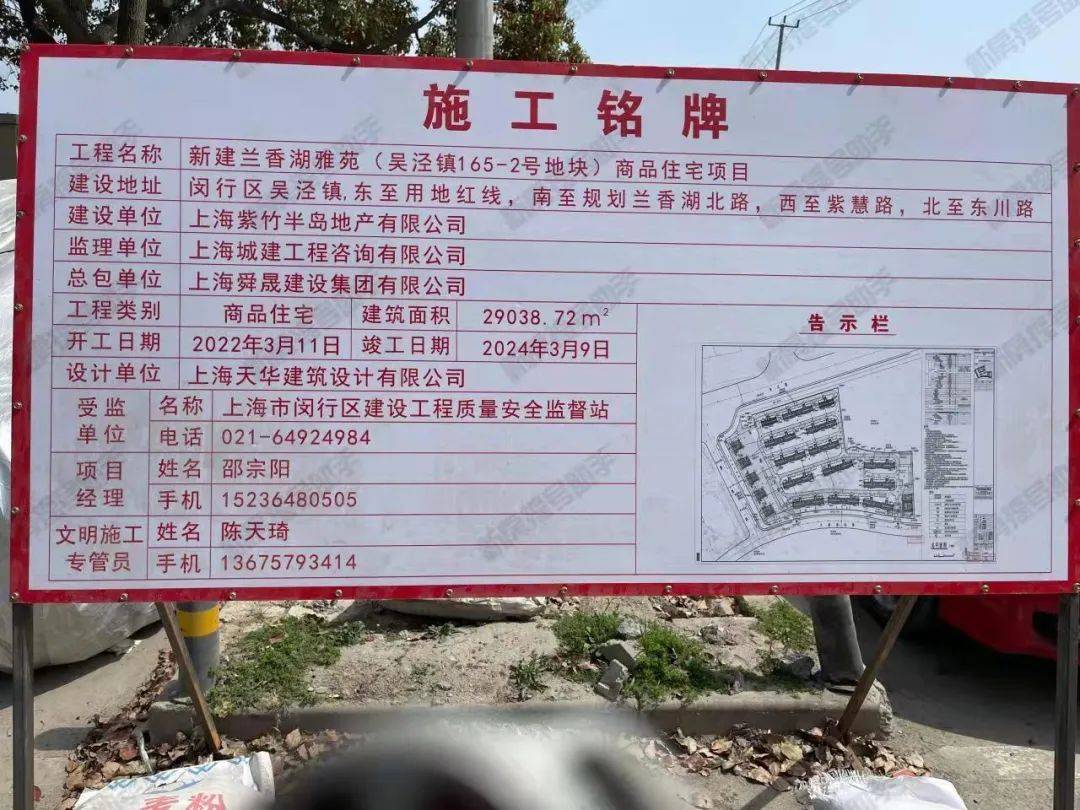 施工铭牌
工程名称 新建兰香湖雅苑（吴泾镇165-2号地块）商品住宅项目
建设地址 闵行区吴泾镇,东至用地红线，南至规划兰香湖北路，西至紫慧路，北至东川路
建设单位 上海紫竹半岛地产有限公司
监理单位 上海城建工程咨询有限公司
总包单位 上海舜晟建设集团有限公司
工程类别 商品住宅 建筑面积 29038.72m²
开工日期 2022年3月11日 竣工日期 2024年3月9日
设计单位 上海天华建筑设计有限公司
受监单位 名称 上海市闵行区建设工程质量安全监督站
电话 021-64924984
项目经理 姓名 邵宗阳
手机 15236480505
文明施工专管员 姓名 陈天琦
手机 13675793414
告示栏